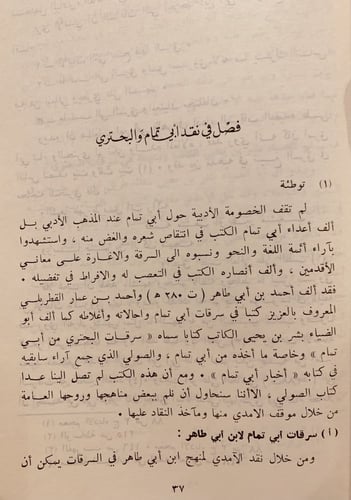 فصل في نقد ابي تمام والبحتري
(١) توطئة
لم تقف الخصومة الأدبية حول أبي تمام عند المذهب الأدبي بل
ألف أعداء ابي تمام الكتب في انتقاص شعره والغض منه ، واستشهدوا
بآراء أئمة اللغة والنحو ونسبوه الى السرقة والاغارة على معاني
الأقدمين ، وألف أنصاره الكتب في التعصب له والافراط في تفضيله .
فقد ألف أحمد بن أبي طاهر ( ت ٢٨٠ ھ ) وأحمد بن عمار القطربلي
المعروف بالعزيز كتبا في سرقات أبي تمام واحالاته وأغلاطه كما ألف أبو
الضياء بشر بن يحيى الكاتب كتابا سماه « سرقات البحتري من أبي
تمام » وخاصة ما أخذه من أبي تمام ، والصولي الذي جمع آراء سابقيه
في كتابه « أخبار أبي تمام » . ومع أن هذه الكتب لم تصل الينا عدا
كتاب الصولي ، الاأننا سنحاول أن نلم ببعض مناهجها وروحها العامة
من خلال موقف الامدي منها ومآخذ النقاد عليها .
( أ ) سرقات أبي تمام لابن ابي طاهر :
ومن خلال نقد الآمدي لمنهج ابن أبي طاهر في السرقات يمكن أن
٣٧